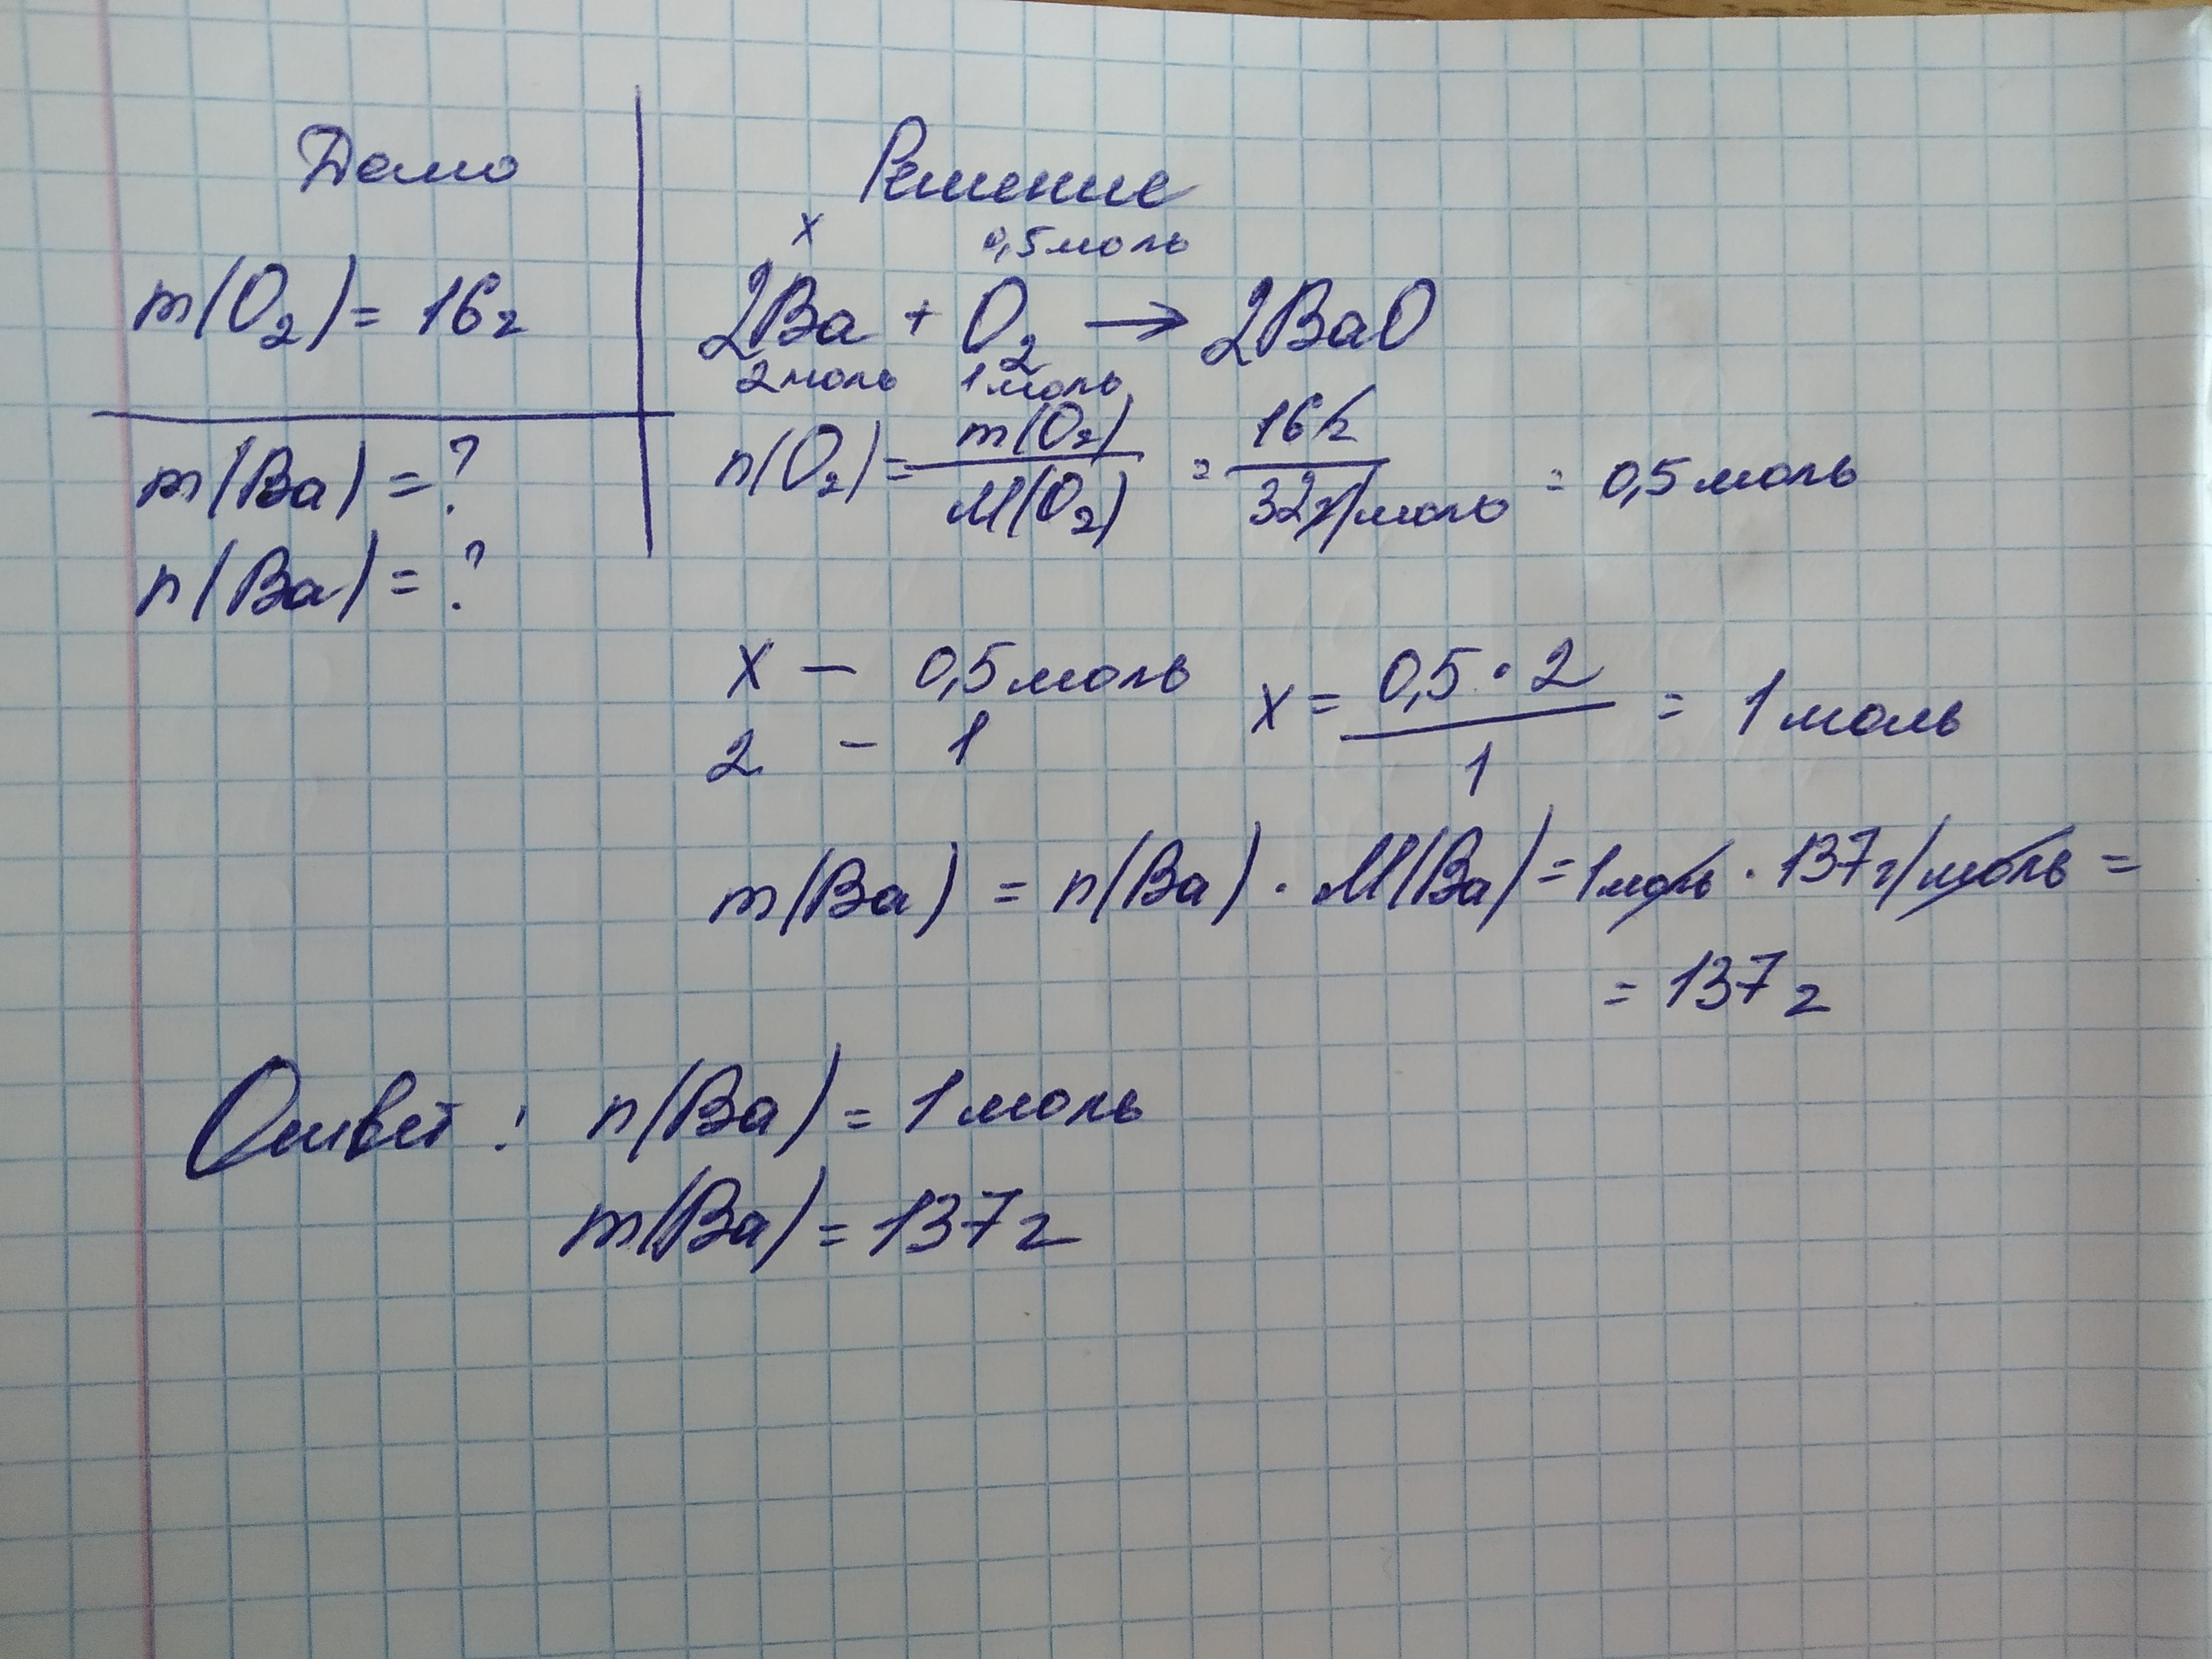 Дано
m(O₂) = 16г
m(Ba) = ?
n(Ba) = ?
Решение
x 0,5 моль
2Ba + O₂ → 2BaO
2 моль 1 моль
n(O₂) = m(O₂) / M(O₂) = 16г / 32г/моль = 0,5 моль
x — 0,5 моль x = 0,5 · 2 / 1 = 1 моль
2 — 1
m(Ba) = n(Ba) · M(Ba) = 1моль · 137г/моль =
= 137 г
Ответ: n(Ba) = 1 моль
m(Ba) = 137 г